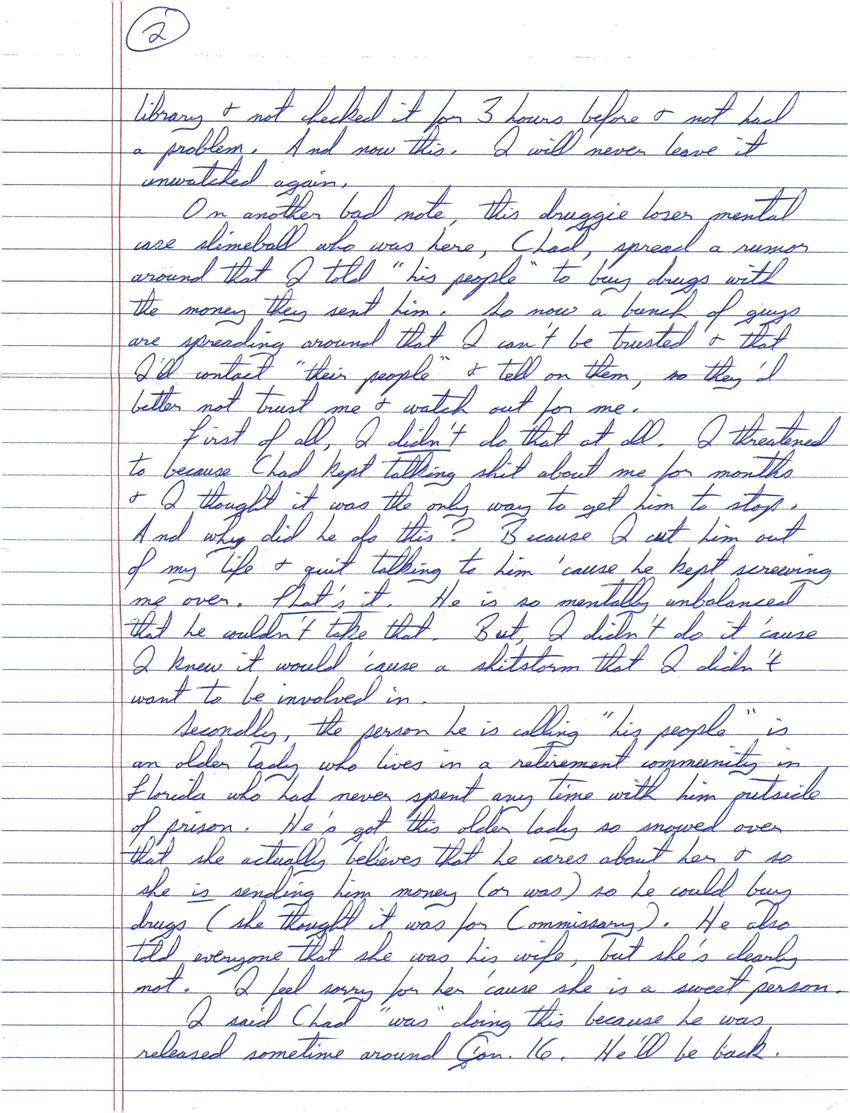 2
library & not checked it for 3 hours before & not had
a problem. And now this. I will never leave it
unwatched again.
On another bad note, this druggie loser mental
case slimeball who was here, Chad, spread a rumor
around that I told "his people" to buy drugs with
the money they sent him. So now a bunch of guys
are spreading around that I can't be trusted & that
I'd contact "their people" & tell on them, so they'd
better not trust me & watch out for me.
First of all, I didn't do that at all. I threatened
to because Chad kept talking shit about me for months
& I thought it was the only way to get him to stop.
And why did he do this? Because I cut him out
of my life & quit talking to him 'cause he kept screwing
me over. That's it. He is so mentally unbalanced
that he couldn't take that. But, I didn't do it 'cause
I knew it would 'cause a shitstorm that I didn't
want to be involved in.
Secondly, the person he is calling "his people" is
an older lady who lives in a retirement community in
Florida who had never spent any time with him outside
of prison. He's got this older lady so snowed over
that she actually believes that he cares about her & so
she is sending him money (or was) so he could buy
drugs (she thought it was for Commissary). He also
told everyone that she was his wife, but she's clearly
not. I feel sorry for her 'cause she is a sweet person.
I said Chad "was" doing this because he was
released sometime around Jan. 16. He'll be back.